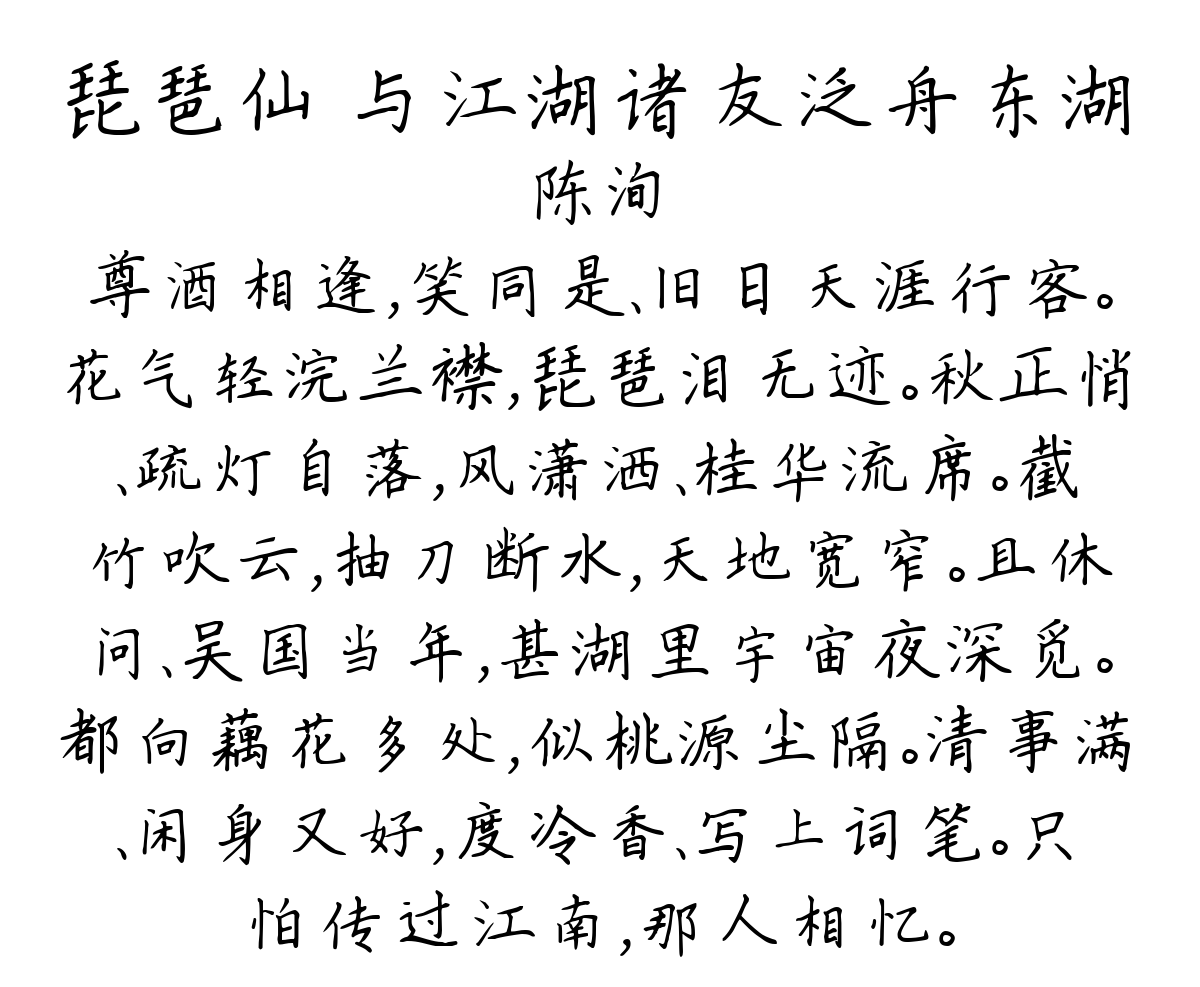 琵琶仙 与江湖诸友泛舟东湖
陈洵
尊酒相逢,笑同是、旧日天涯行客。
花气轻浣兰襟,琵琶泪无迹。秋正悄
、疏灯自落,风潇洒、桂华流席。截
竹吹云,抽刀断水,天地宽窄。且休
问、吴国当年,甚湖里宇宙夜深觅。
都向藕花多处,似桃源尘隔。清事满
、闲身又好,度冷香、写上词笔。只
怕传过江南,那人相忆。